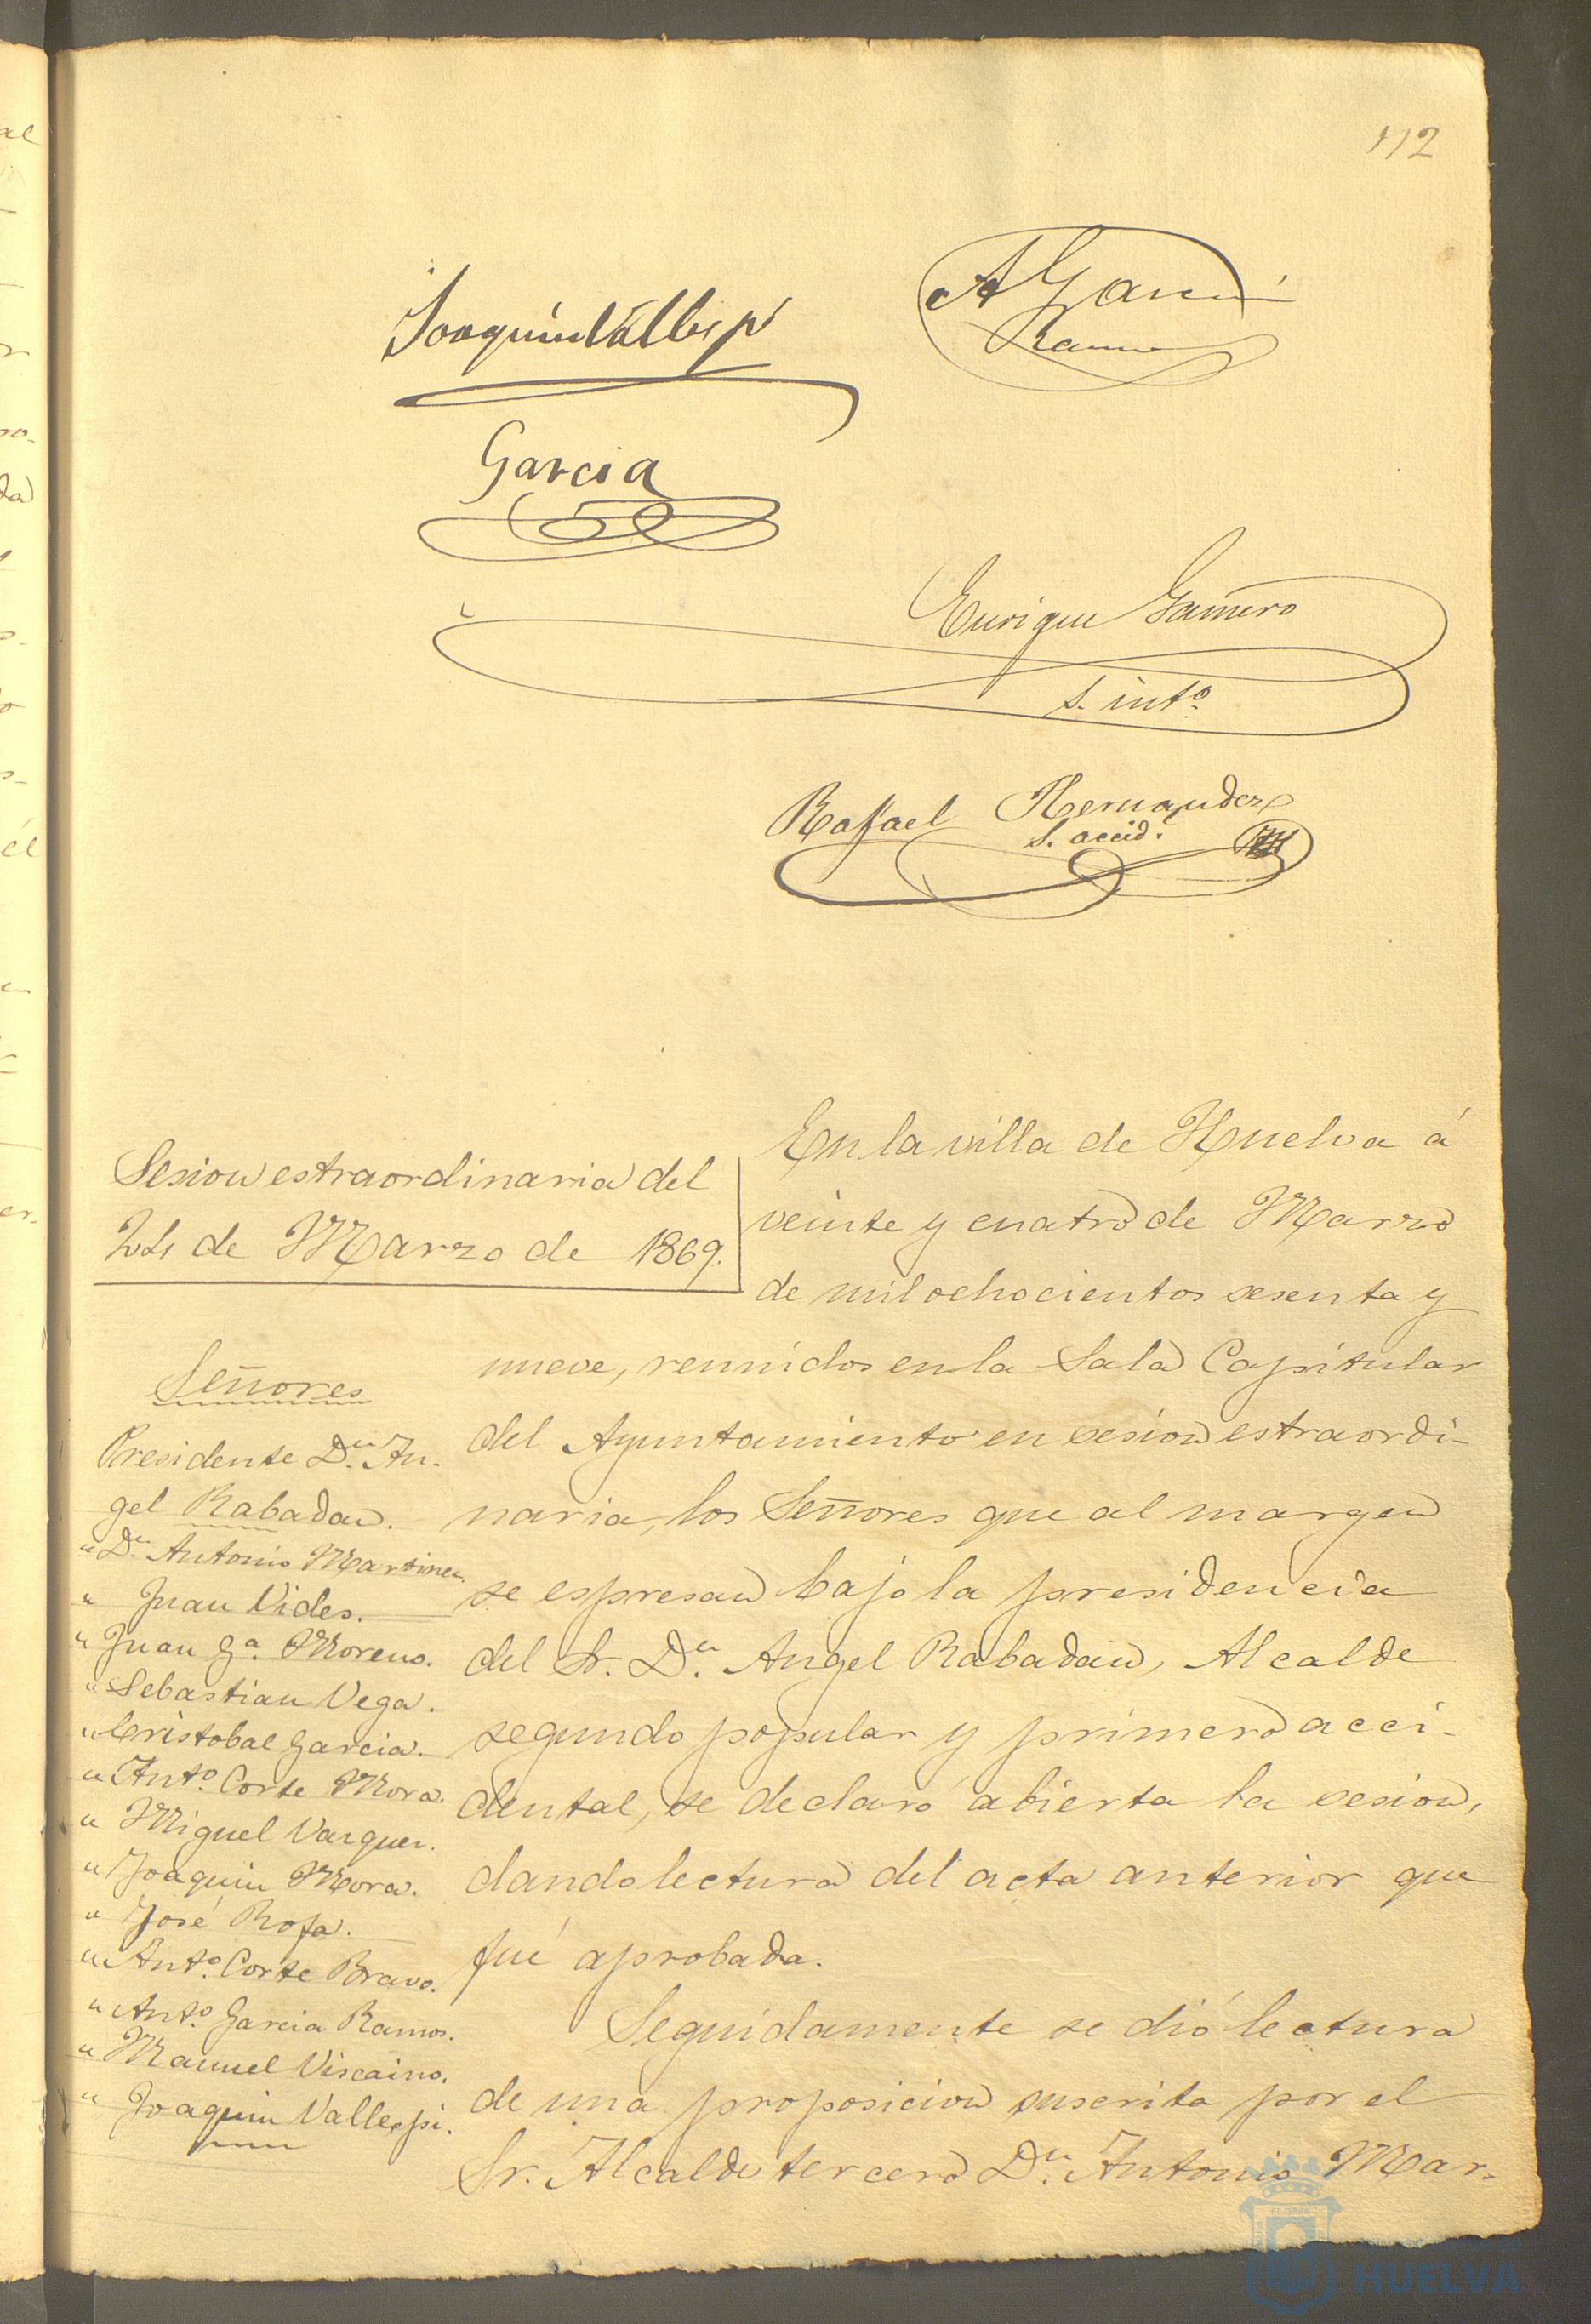 112
Joaquin Vallespi
A Garcia
Ramos
Garcia
Enrique Gamero
s. intº
Rafael Hernandez
S. accid.
Sesion estraordinaria del
24 de Marzo de 1869.
Señores
Presidente Dn. An-
gel Rabadan.
" Dn. Antonio Martinez.
" Juan Vides.
" Juan Ga. Moreno.
" Sebastian Vega.
" Cristobal Garcia.
" Antº. Corte Mora.
" Miguel Vazquez.
" Joaquin Mora.
" José Rofa.
" Antº. Corte Bravo.
" Antº. Garcia Ramos.
" Manuel Viscaino.
" Joaquin Vallespi.
En la villa de Huelva á
veinte y cuatro de Marzo
de mil ochocientos sesenta y
nueve, reunidos en la Sala Capitular
del Ayuntamiento en sesion estraordi-
naria, los Señores que al margen
se espresan bajo la presidencia
del Sr. Dn. Angel Rabadan, Alcalde
segundo popular y primero acci-
dental, se declaró abierta la sesion,
dando lectura del acta anterior que
fué aprobada.
Seguidamente se dió lectura
de una proposicion suscrita por el
Sr. Alcalde tercero Dn. Antonio Mar-
HUELVA